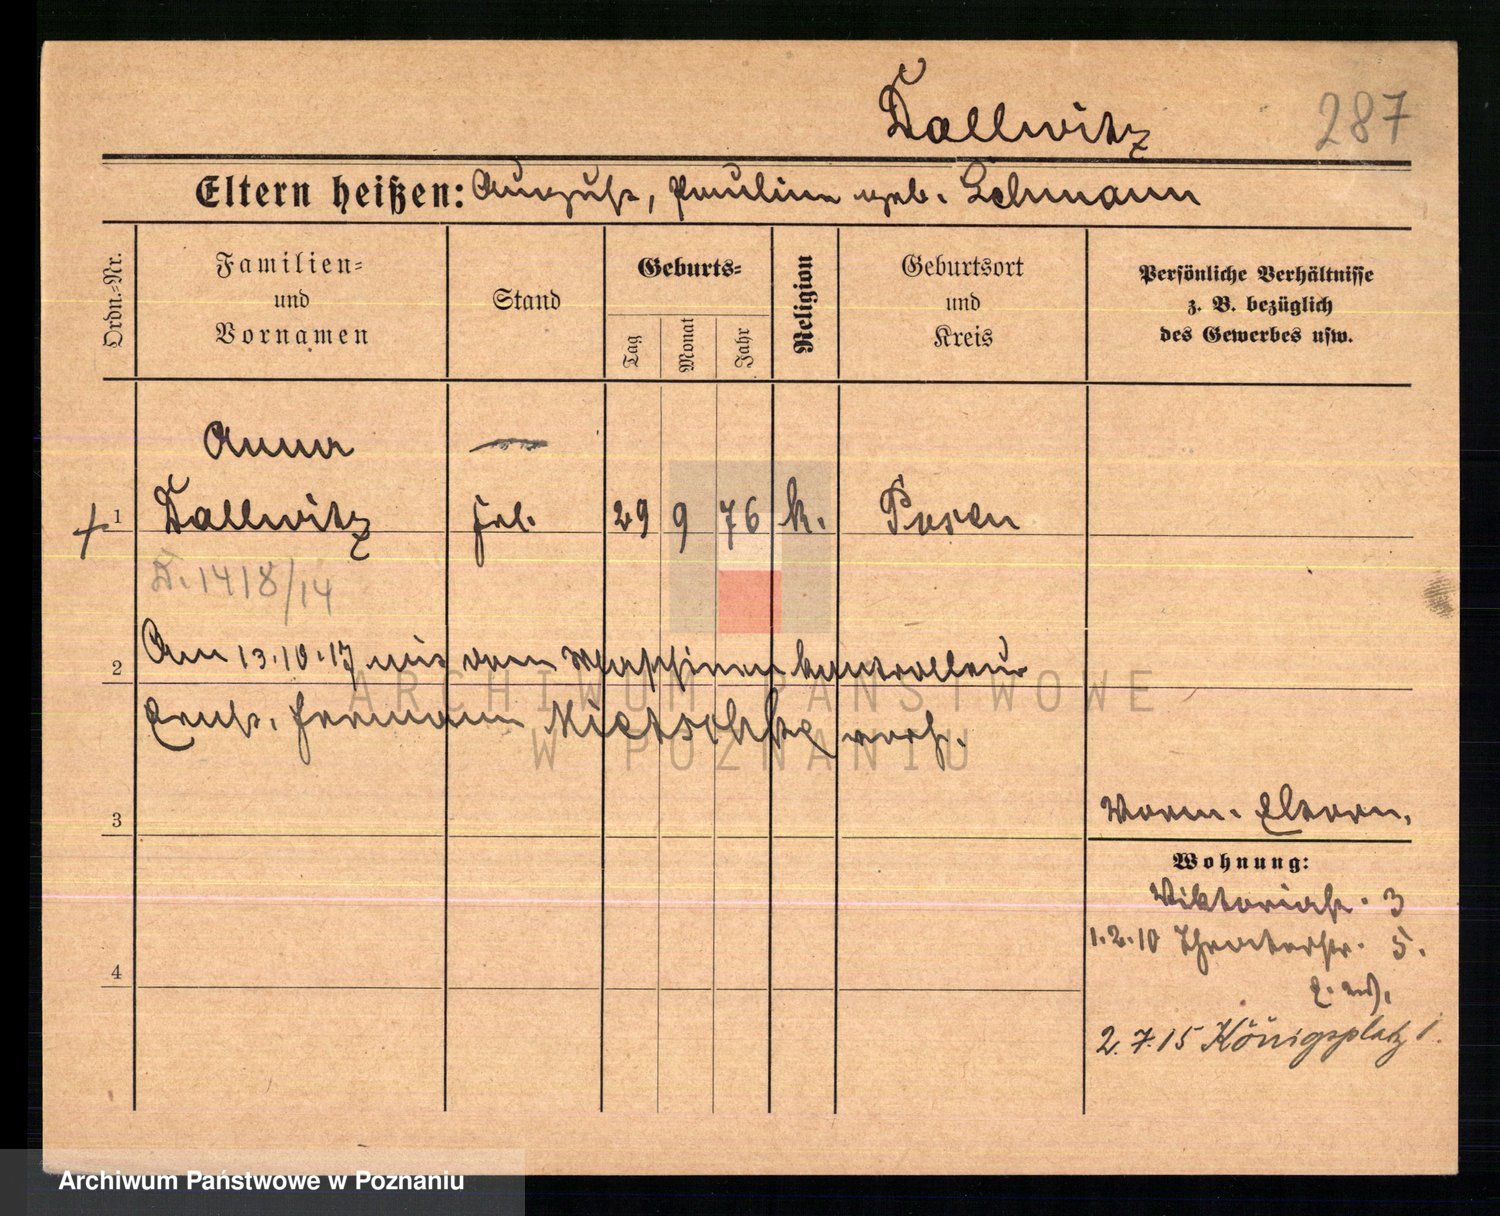 Dallwitz
287
Eltern heißen: August, Pauline geb. Lehmann
Ordn.=Nr.
Familien=
und
Vornamen
Stand
Geburts=
Tag
Monat
Jahr
Religion
Geburtsort
und
Kreis
Persönliche Verhältnisse
z. B. bezüglich
des Gewerbes usw.
Anna
1 Dallwitz Frl. 29 9 76 k. Posen
D. 1418/14
2 Am 13.10.17 mit dem Maschinenkontrolleur
Ernst Hermann Nietschke verh.
3
Vorm. Eltern.
Wohnung:
Viktoriast. 3
1.2.10 Theaterstr. 5.
4
2.7.15 Königsplatz 1.
ARCHIWUM PAŃSTWOWE
W POZNANIU
Archiwum Państwowe w Poznaniu